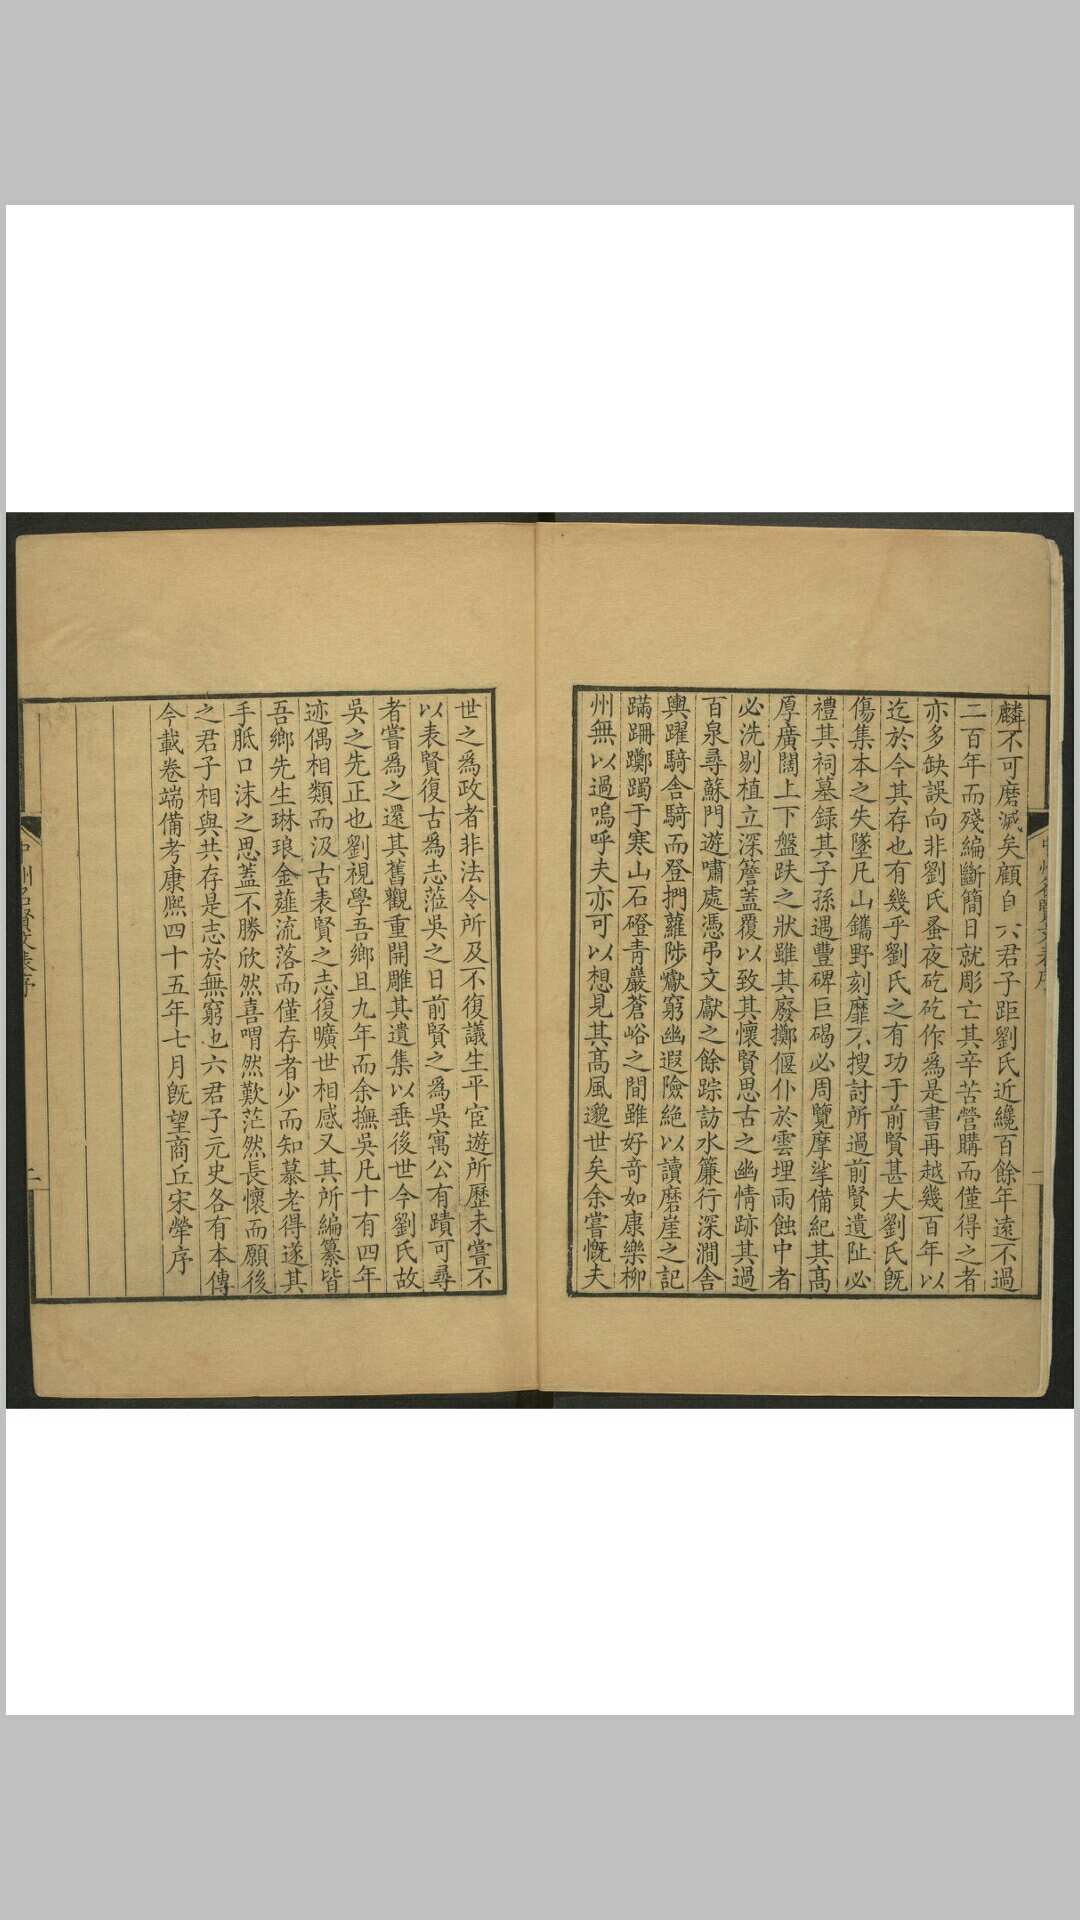 麟不可磨滅矣顧自六君子距劉氏近纔百餘年遠不過
二百年而殘編斷簡日就彫亡其辛苦營購而僅得之者
亦多缺誤向非劉氏蚤夜矻矻作爲是書再越幾百年以
迄於今其存也有幾乎劉氏之有功于前賢甚大劉氏旣
傷集本之失墜凡山鐫野刻靡不搜討所過前賢遺阯必
禮其祠墓録其子孫遇豐碑巨碣必周覽摩挲備紀其髙
厚廣闊上下盤趺之狀雖其廢擲偃仆於雲埋雨蝕中者
必洗剔植立深簷蓋覆以致其懷賢思古之幽情跡其過
百泉尋蘇門遊嘯處憑弔文獻之餘踪訪水簾行深澗舍
輿躍騎舍騎而登捫蘿陟巘窮幽遐險絶以讀磨崖之記
蹣跚躑躅于寒山石磴青巖蒼峪之間雖好奇如康樂柳
州無以過嗚呼夫亦可以想見其髙風邈世矣余嘗慨夫
世之爲政者非法令所及不復議生平宦遊所歷未嘗不
以表賢復古爲志蒞吳之日前賢之爲吳寓公有蹟可尋
者嘗爲之還其舊觀重開雕其遺集以垂後世今劉氏故
吳之先正也劉視學吾鄉且九年而余撫吳凡十有四年
迹偶相類而汲古表賢之志復曠世相感又其所編纂皆
吾鄉先生琳琅金薤流落而僅存者少而知慕老得遂其
手胝口沫之思蓋不勝欣然喜喟然歎茫然長懷而願後
之君子相與共存是志於無窮也六君子元史各有本傳
今載卷端備考康熙四十五年七月旣望商丘宋犖序
中州名賢文表序
二